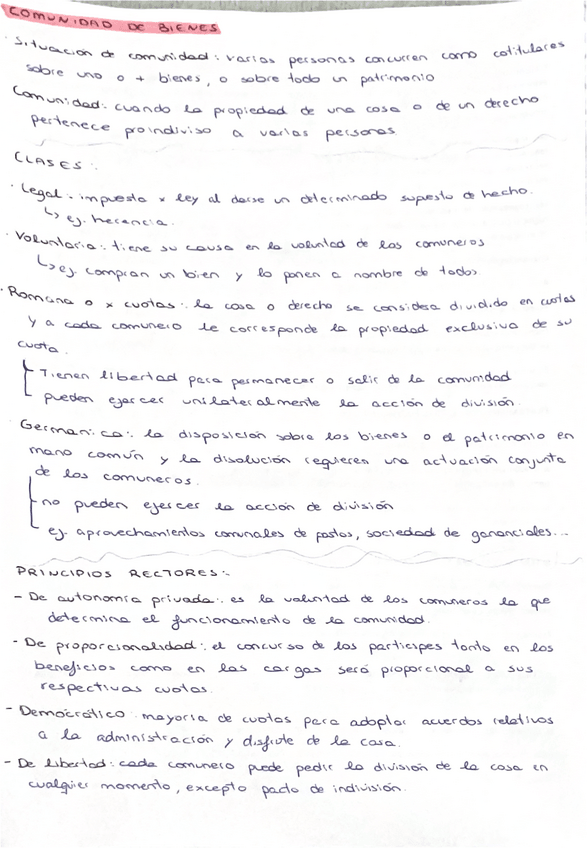 COMUNIDAD DE BIENES
· Situación de comunidad: varias personas concurren como cotitulares
sobre uno o + bienes, o sobre todo un patrimonio
Comunidad: cuando la propiedad de una cosa o de un derecho
pertenece proindiviso a varias personas
CLASES:
· Legal: impuesta x ley al darse un determinado supuesto de hecho.
↳ ej. herencia.
· Voluntaria: tiene su causa en la voluntad de los comuneros
↳ ej. compran un bien y lo ponen a nombre de todos
· Romana o x cuotas: la cosa o derecho se considera dividido en cuotas
y a cada comunero le corresponde la propiedad exclusiva de su
cuota.
Tienen libertad para permanecer o salir de la comunidad
pueden ejercer unilateralmente la acción de división
· Germánica: la disposición sobre los bienes o el patrimonio en
mano común y la disolución requieren una actuación conjunta
de los comuneros.
no pueden ejercer la acción de división
ej. aprovechamientos comunales de pastos, sociedad de gananciales...
PRINCIPIOS RECTORES:
- De autonomía privada: es la voluntad de los comuneros la que
determina el funcionamiento de la comunidad.
- De proporcionalidad: el concurso de los partícipes tanto en los
beneficios como en las cargas será proporcional a sus
respectivas cuotas.
- Democrático: mayoría de cuotas para adoptar acuerdos relativos
a la administración y disfrute de la cosa.
- De libertad: cada comunero puede pedir la división de la cosa en
cualquier momento, excepto pacto de indivisión.